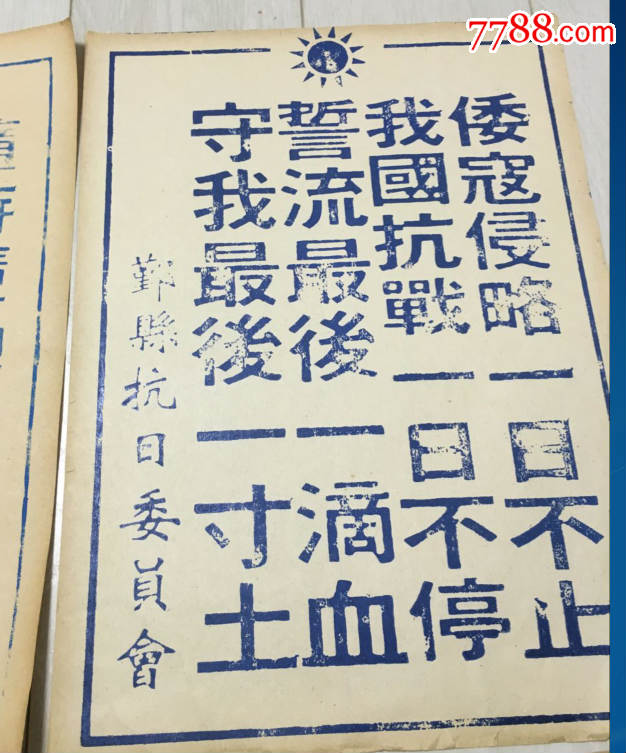 7788.com
倭寇侵略一日不止
我國抗戰一日不停
誓流最後一滴血
守我最後一寸土
鄞縣抗日委員會